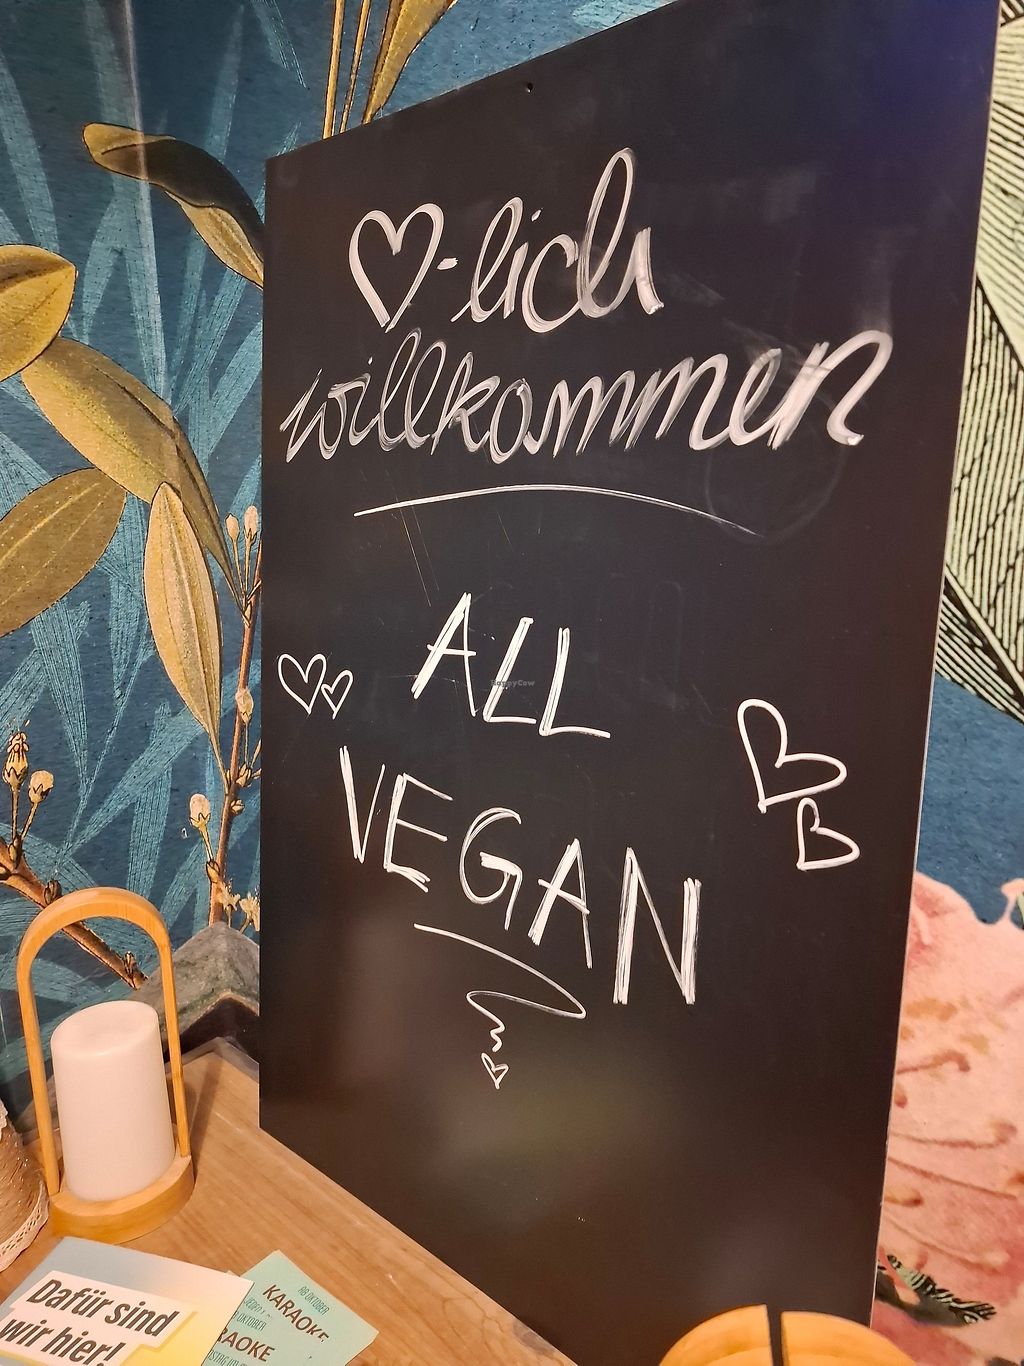 ♡-lich
willkommen
ALL
VEGAN
HappyCow
Dafür sind
wir hier!
AB OKTOBER
KARAOKE
OKTOBER
RAOKE